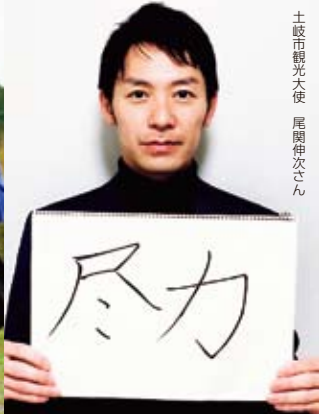 土岐市観光大使　尾関伸次さん
尽力